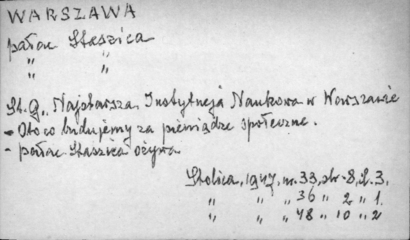 WARSZAWA
pałac Staszica
" "
St. G., Najstarsza Instytucja Naukowa w Warszawie
- Oto co budujemy za pieniądze społeczne.
- pałac Staszica ożywa
Stolica, 1947, nr. 33, str. 8, il. 3.
" " " 36 " 2 " 1.
" " " 48 " 10 " 2